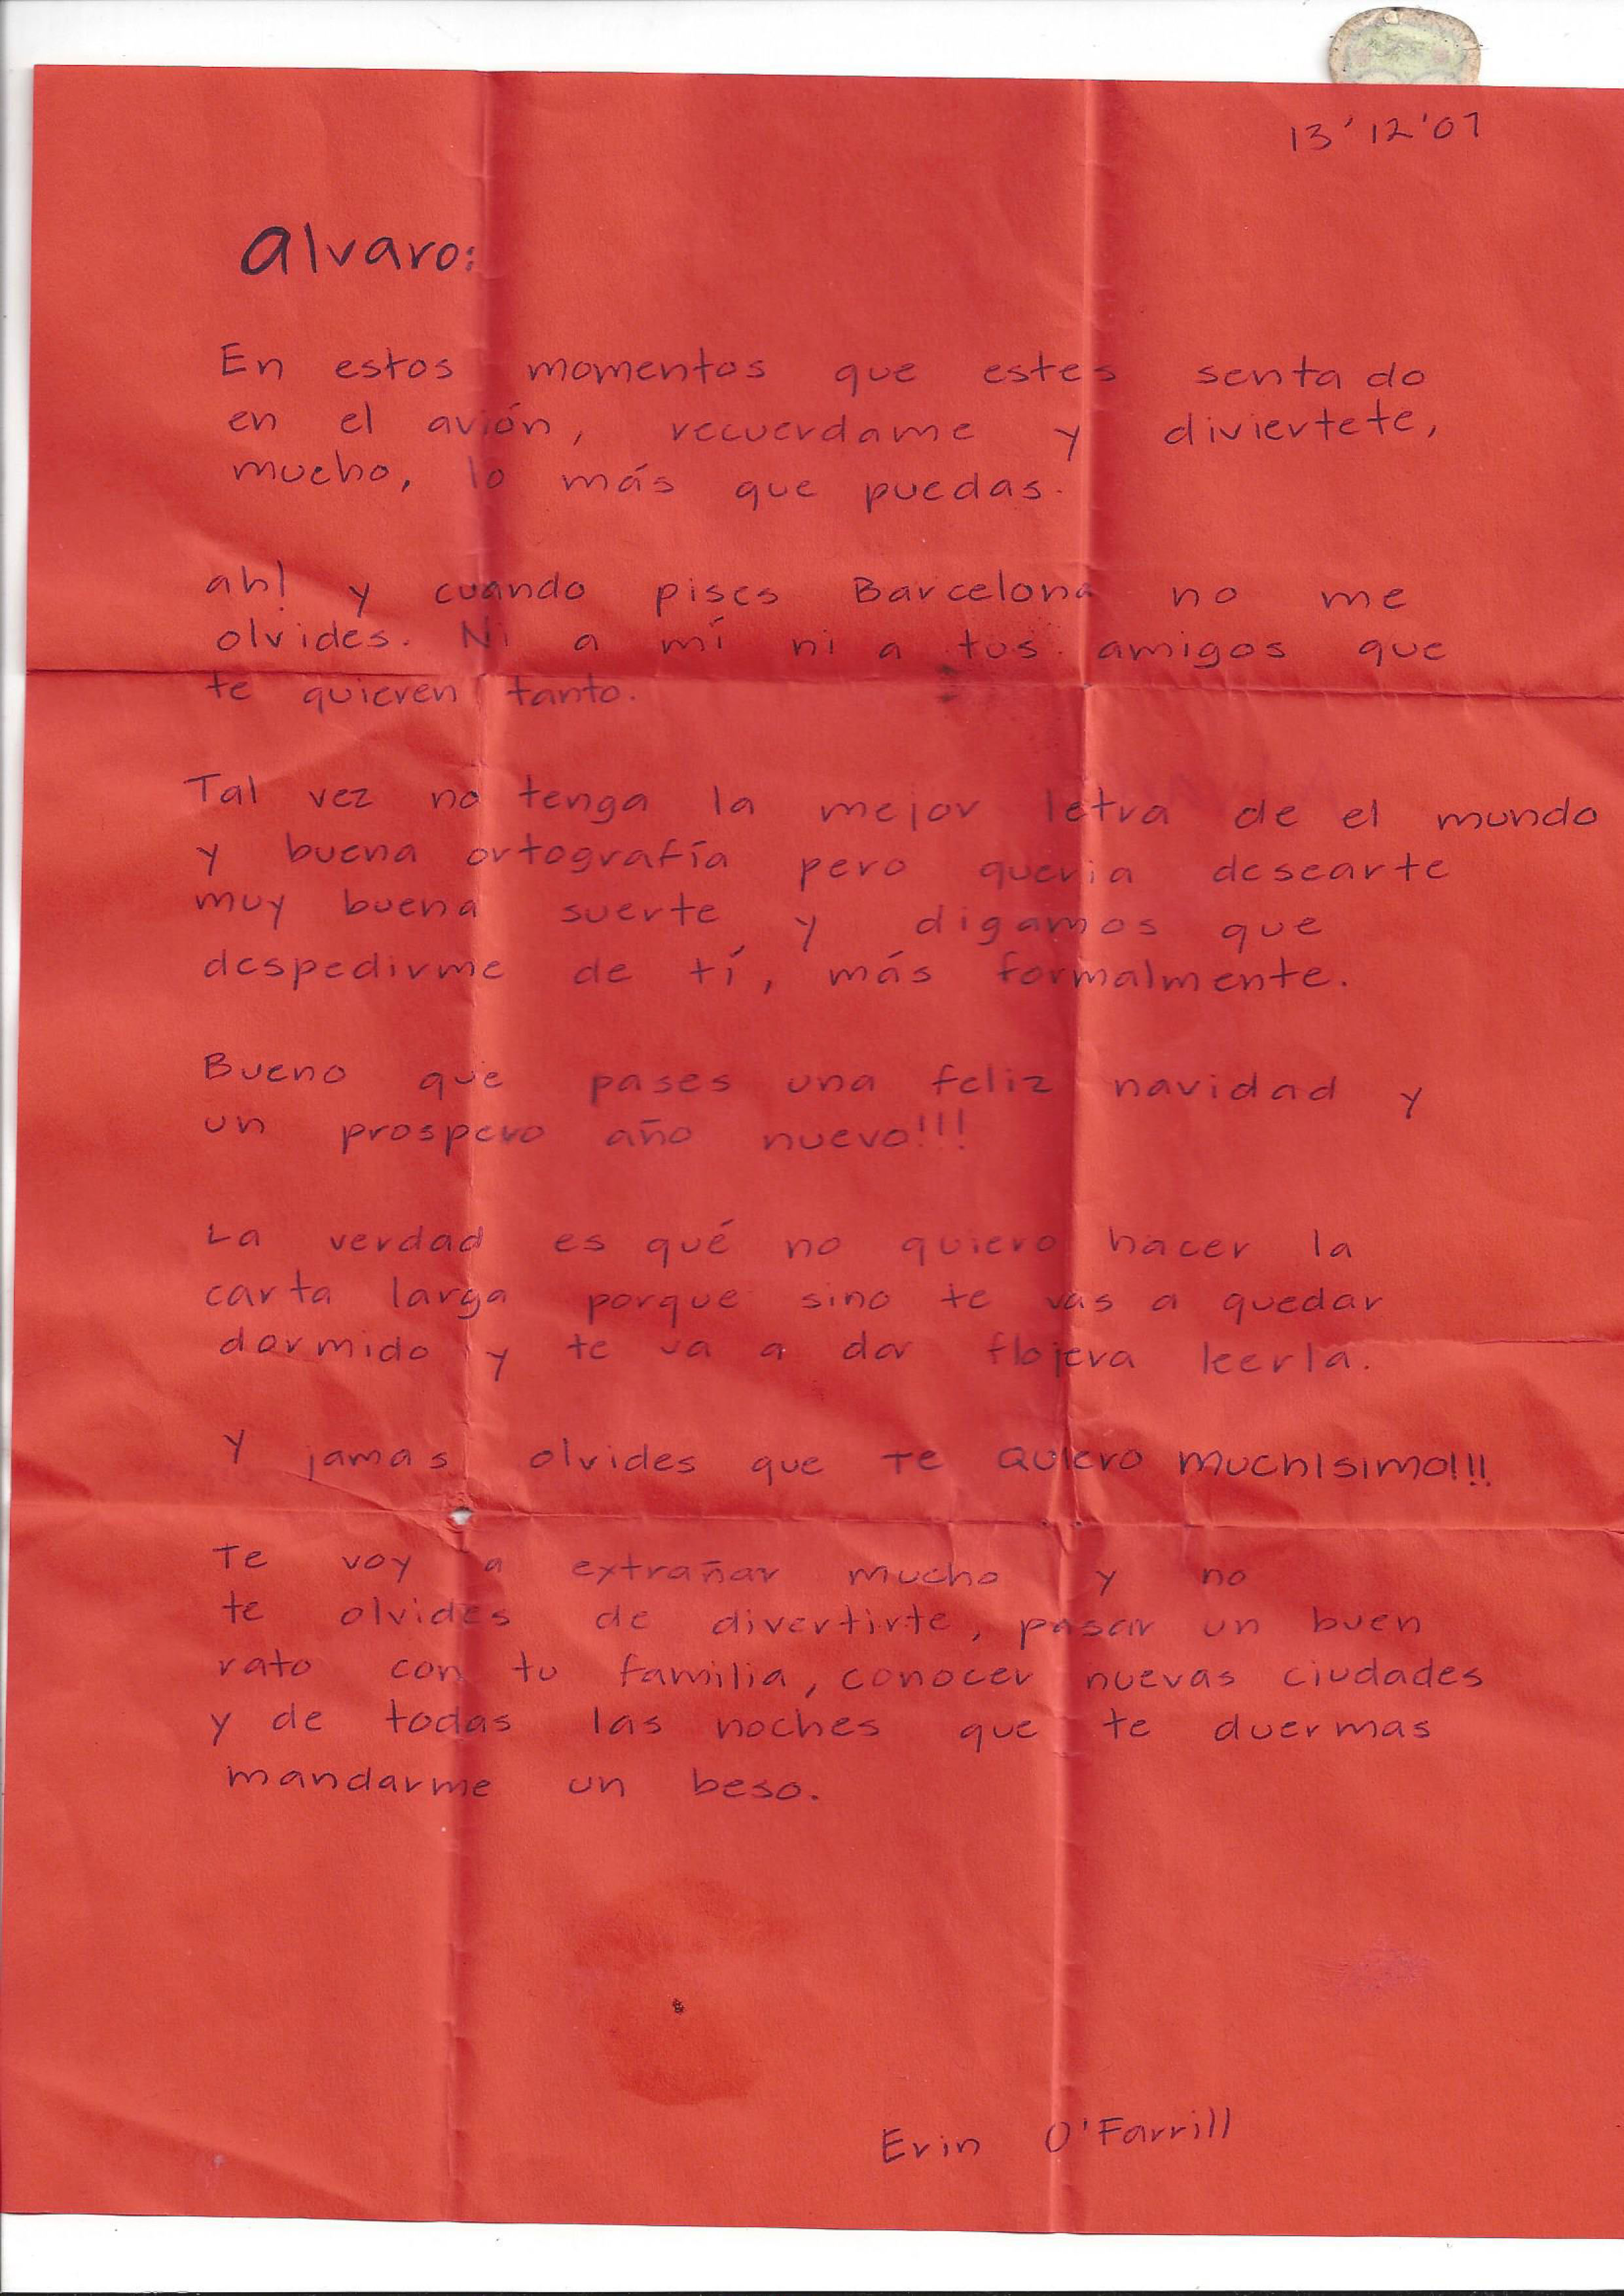 13'12'07
alvaro:
En estos momentos que estes sentado
en el avión, recuerdame y diviertete,
mucho, lo más que puedas.
ah! y cuando pises Barcelona no me
olvides. Ni a mí ni a tus amigos que
te quieren tanto.
Tal vez no tenga la mejor letra de el mundo
y buena ortografía pero queria desearte
muy buena suerte y digamos que
despedirme de tí, más formalmente.
Bueno que pases una feliz navidad y
un prospero año nuevo!!!
La verdad es qué no quiero hacer la
carta larga porque sino te vas a quedar
dormido y te va a dar flojera leerla.
Y jamas olvides que TE QUIERO MUCHISIMO!!!
Te voy a extrañar mucho y no
te olvides de divertirte, pasar un buen
rato con tu familia, conocer nuevas ciudades
y de todas las noches que te duermas
mandarme un beso.
Erin O'Farrill